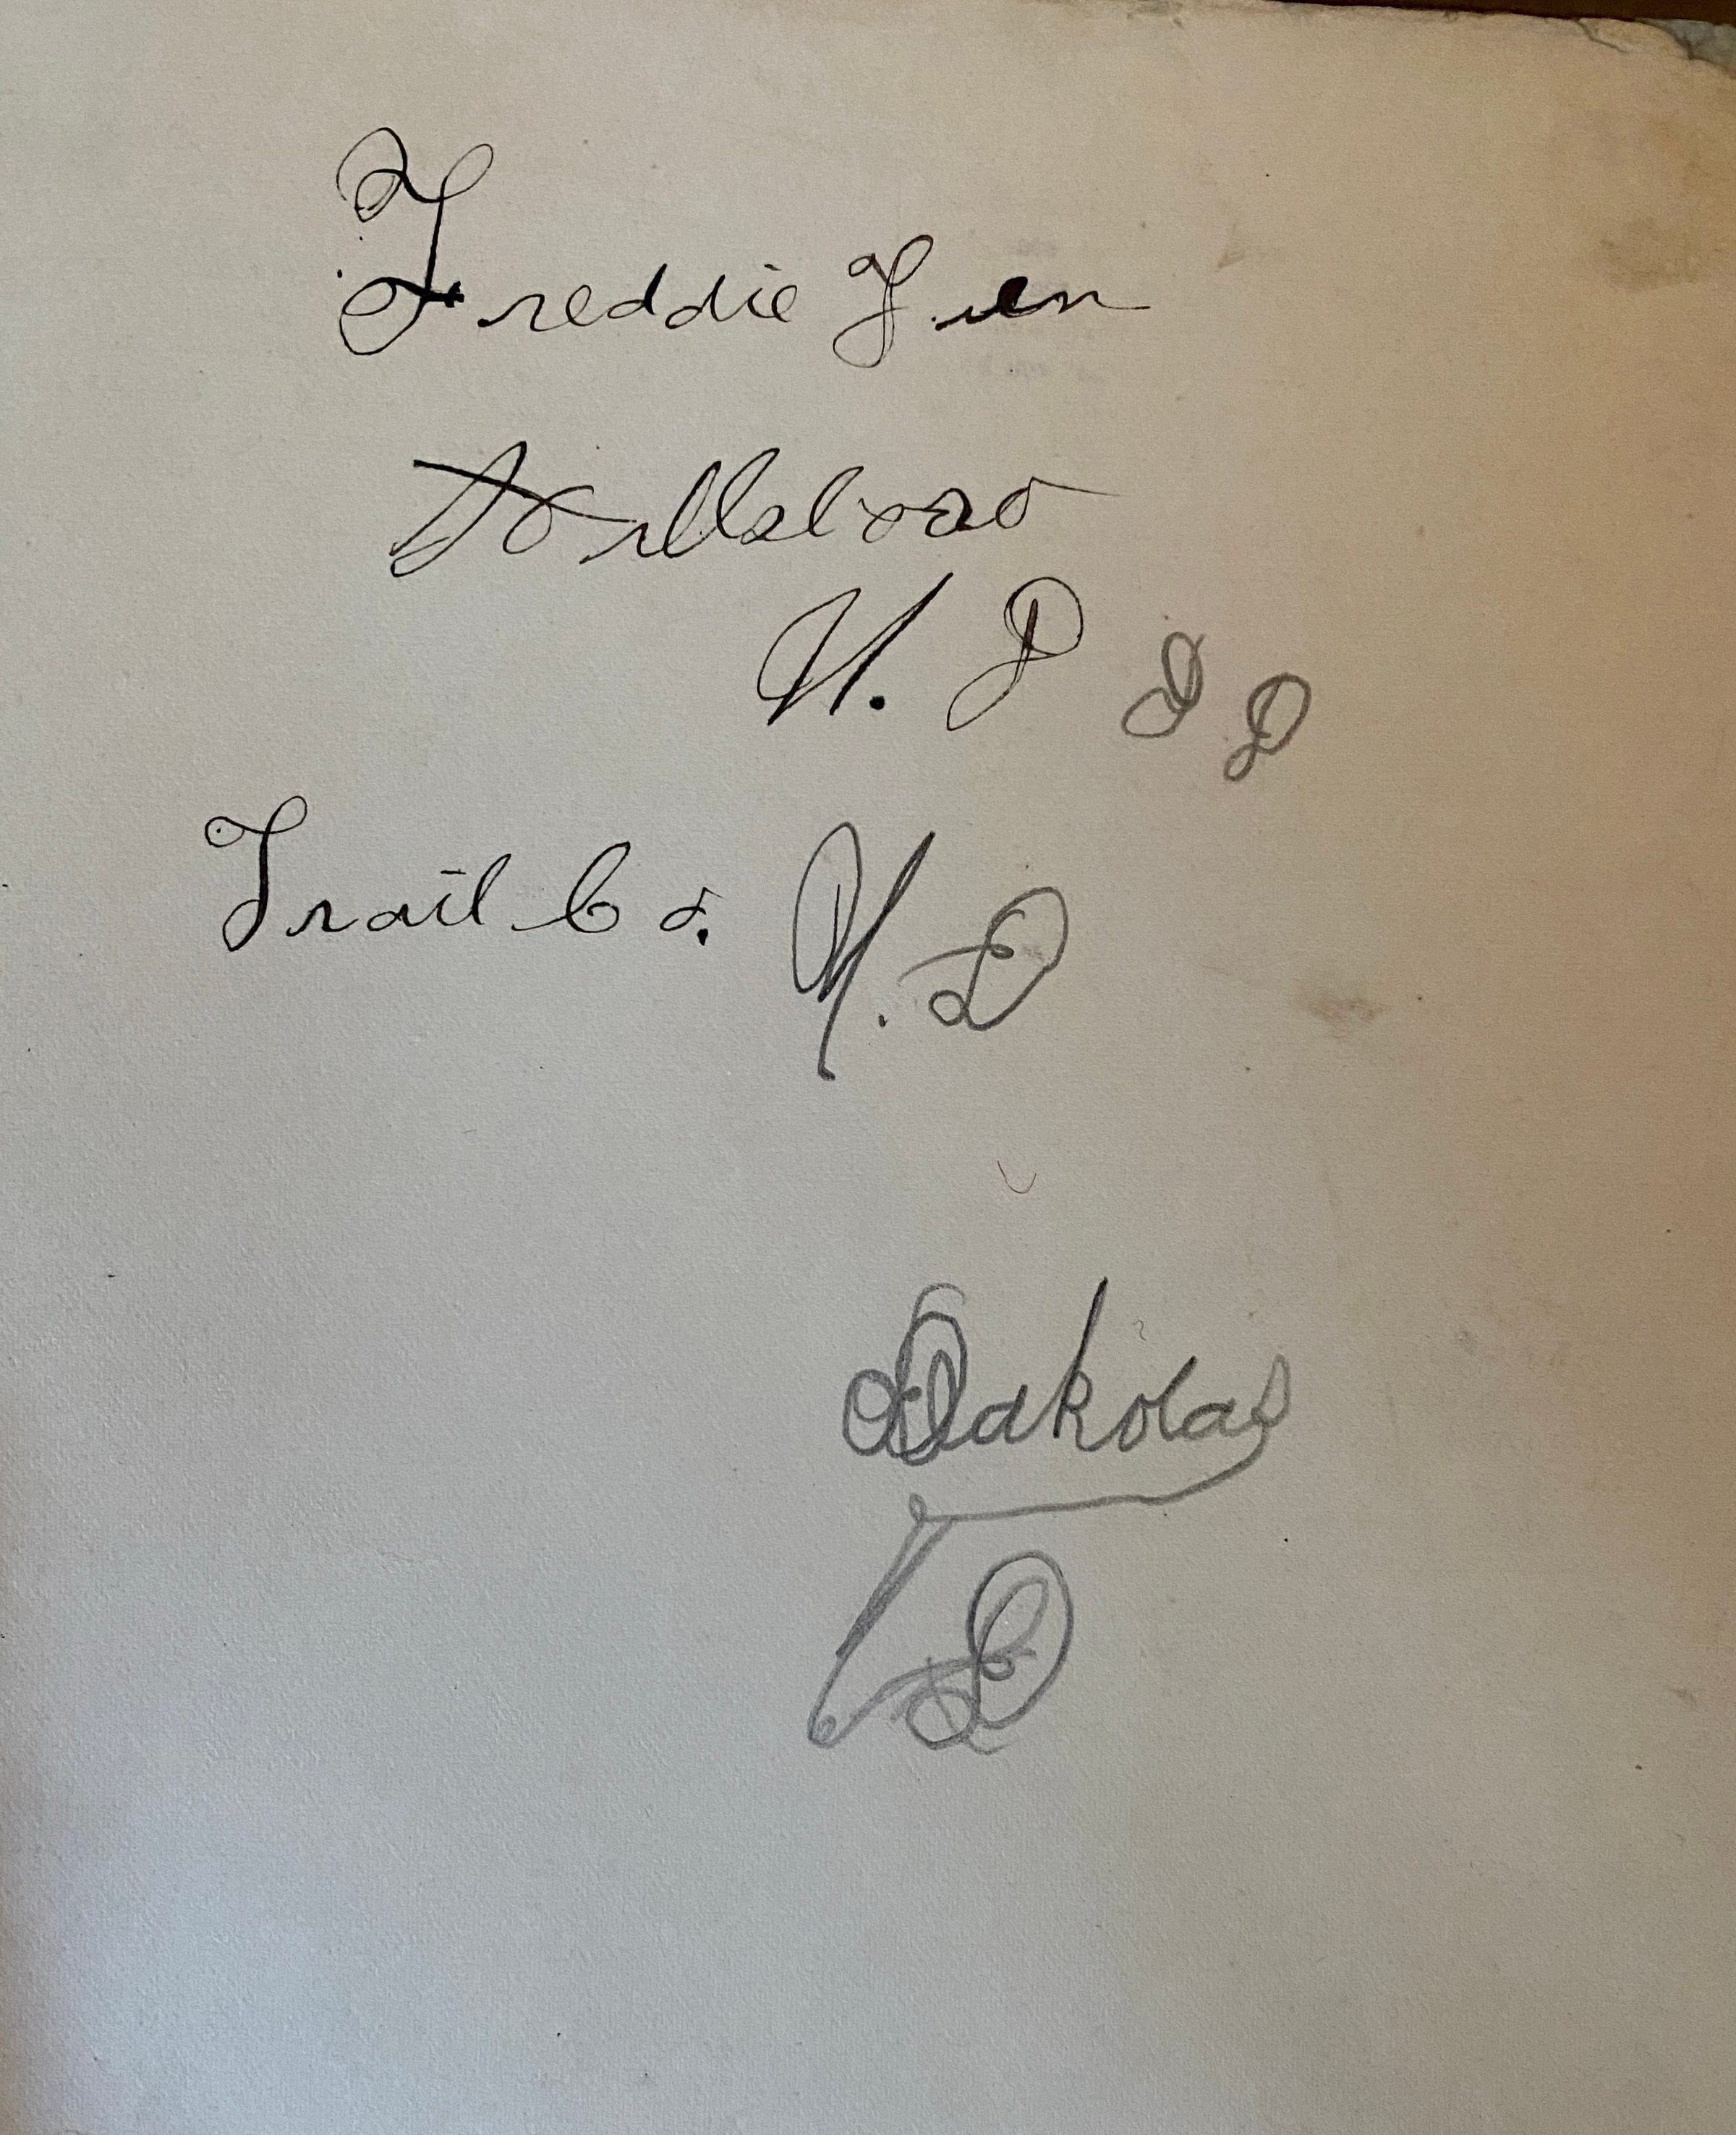 Freddie
Hillsboro
N. D D D
Trail Co. N. D
Dakota
D